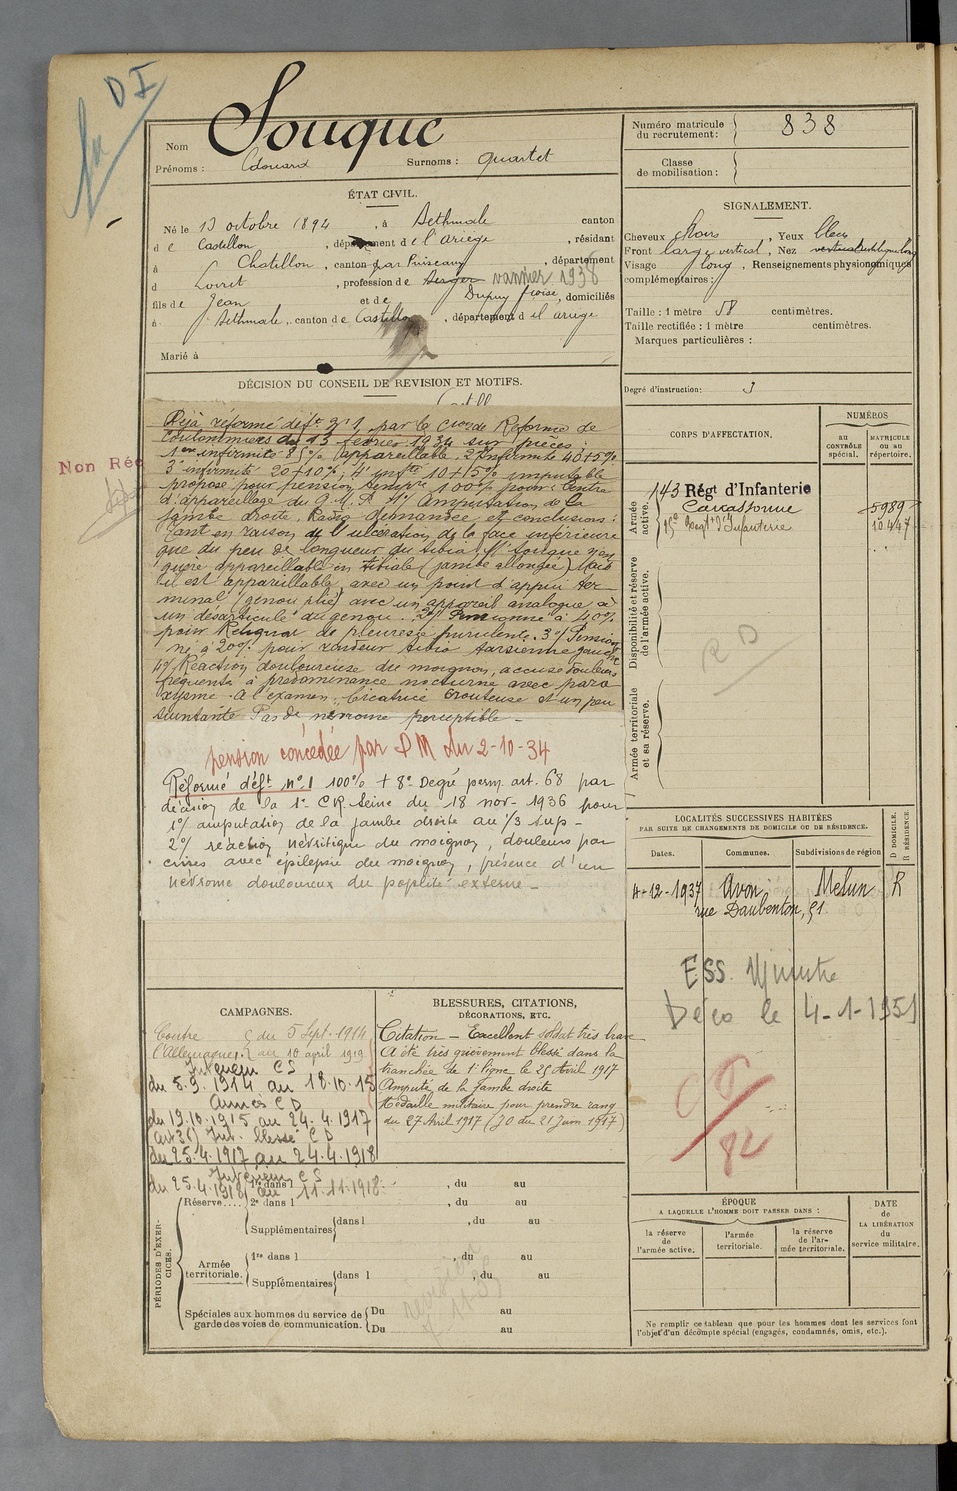 D I
Nom Souque
Prénoms : Edouard Surnoms : quartet
ÉTAT CIVIL.
Né le 13 octobre 1894, à Bethmale canton
de Castillon, département de l'Ariège, résidant
à Chatillon, canton par Puiseaux, département
d Loiret, profession de Berger vannier 1938
fils de Jean et de Dupuy froise, domiciliés
à Bethmale, canton de Castillon, département d el ariège
Marié à
DÉCISION DU CONSEIL DE REVISION ET MOTIFS.
Non Réc
Déjà réformé déf.t n°1 par la Cion de Réforme de
Coulommiers du 13 février 1934 sur pièces :
1ere infirmité 85% appareillable. 2e Infirmité 40+5%
3e infirmité 20+10%; 4e infté 10+5% imputable
proposé pour pension tempre 100% pour Centre
d'appareillage du G.M.P. 1°/ Amputation de la
jambe droite. Radio demandée et conclusions :
tant en raison de l'ulcération de la face inférieure
que du peu de longueur du tibia, Mr Souque n'en
guère appareillable en tibiale (jambe allongée) Mais
il est appareillable, avec un point d'appui ter
minal (genou plié) avec un appareil analogue à
un désarticulé du genou. 2°/ Pensionné à 40%
pour Reliquat de pleurésie purulente. 3°/ Pension
né à 20% pour raideur tibio tarsienne gauche
4°/ Réaction douloureuse du moignon, accuse douleurs
fréquents à prédominance nocturne avec paro
xysme. A l'examen, Cicatrice crouteuse et un peu
suintante. Pas de névrome perceptible -
pension concédée par D M du 2-10-34
Réformé déf.t n°1 100% + 8e Degré perm. art. 68 par
décision de la 1e CR Seine du 18 nov- 1936 pour
1°/ amputation de la jambe droite au 1/3 sup -
2°/ réaction névritique du moignon, douleurs par
crises avec épilepsie du moignon, présence d'un
névrome douloureux du poplité externe -
CAMPAGNES.
Contre l'Allemagne { du 5 Sept. 1914
au 10 avril 1919
Intérieur C S
du 5.9.1914 au 18.10.15
Armées C D
du 19.10.1915 au 24.4.1917
(art 36) Int. blessé C D
du 25.4.1917 au 24.4.1918
Intérieur C S
du 25.4.1918 au 11.11.1918
BLESSURES, CITATIONS,
DÉCORATIONS, ETC.
Citation - Excellent soldat très brave
A été très grièvement blessé dans la
tranchée de 1e ligne le 25 Avril 1917
Amputé de la jambe droite
Médaille militaire pour prendre rang
du 27 Avril 1917 (JO du 21 Juin 1917)
PÉRIODES D'EXERCICES.
Réserve.... { 1re dans l , du au
2e dans l , du au
Supplémentaires { dans l , du au
Armée territoriale. { 1re dans l , du au
Supplémentaires { dans l , du au
Spéciales aux hommes du service de garde des voies de communication. { Du au
Du au
Numéro matricule du recrutement : 838
Classe de mobilisation :
SIGNALEMENT.
Cheveux chats, Yeux bleus
Front large vertical, Nez
Visage long, Renseignements physionomiques
complémentaires :
Taille : 1 mètre 58 centimètres.
Taille rectifiée : 1 mètre centimètres.
Marques particulières :
Degré d'instruction: 3
CORPS D'AFFECTATION.
NUMÉROS
au CONTRÔLE spécial.
MATRICULE ou au répertoire.
Armée active.
143 Régt d'Infanterie
Carcassonne 5989
15e Regt d'Infanterie 10447
Disponibilité et réserve de l'armée active.
R D
Armée territoriale et sa réserve.
LOCALITÉS SUCCESSIVES HABITÉES
PAR SUITE DE CHANGEMENTS DE DOMICILE OU DE RÉSIDENCE.
Dates. Communes. Subdivisions de région
D DOMICILE. R RÉSIDENCE
4-12-1937 Avon Melun R
rue Daubenton, 51
Déco le 4-1-1951
82
ÉPOQUE
A LAQUELLE L'HOMME DOIT PASSER DANS :
la réserve de l'armée active.
l'armée territoriale.
la réserve de l'armée territoriale.
DATE de LA LIBÉRATION du service militaire.
Ne remplir ce tableau que pour les hommes dont les services font
l'objet d'un décompte spécial (engagés, condamnés, omis, etc.).